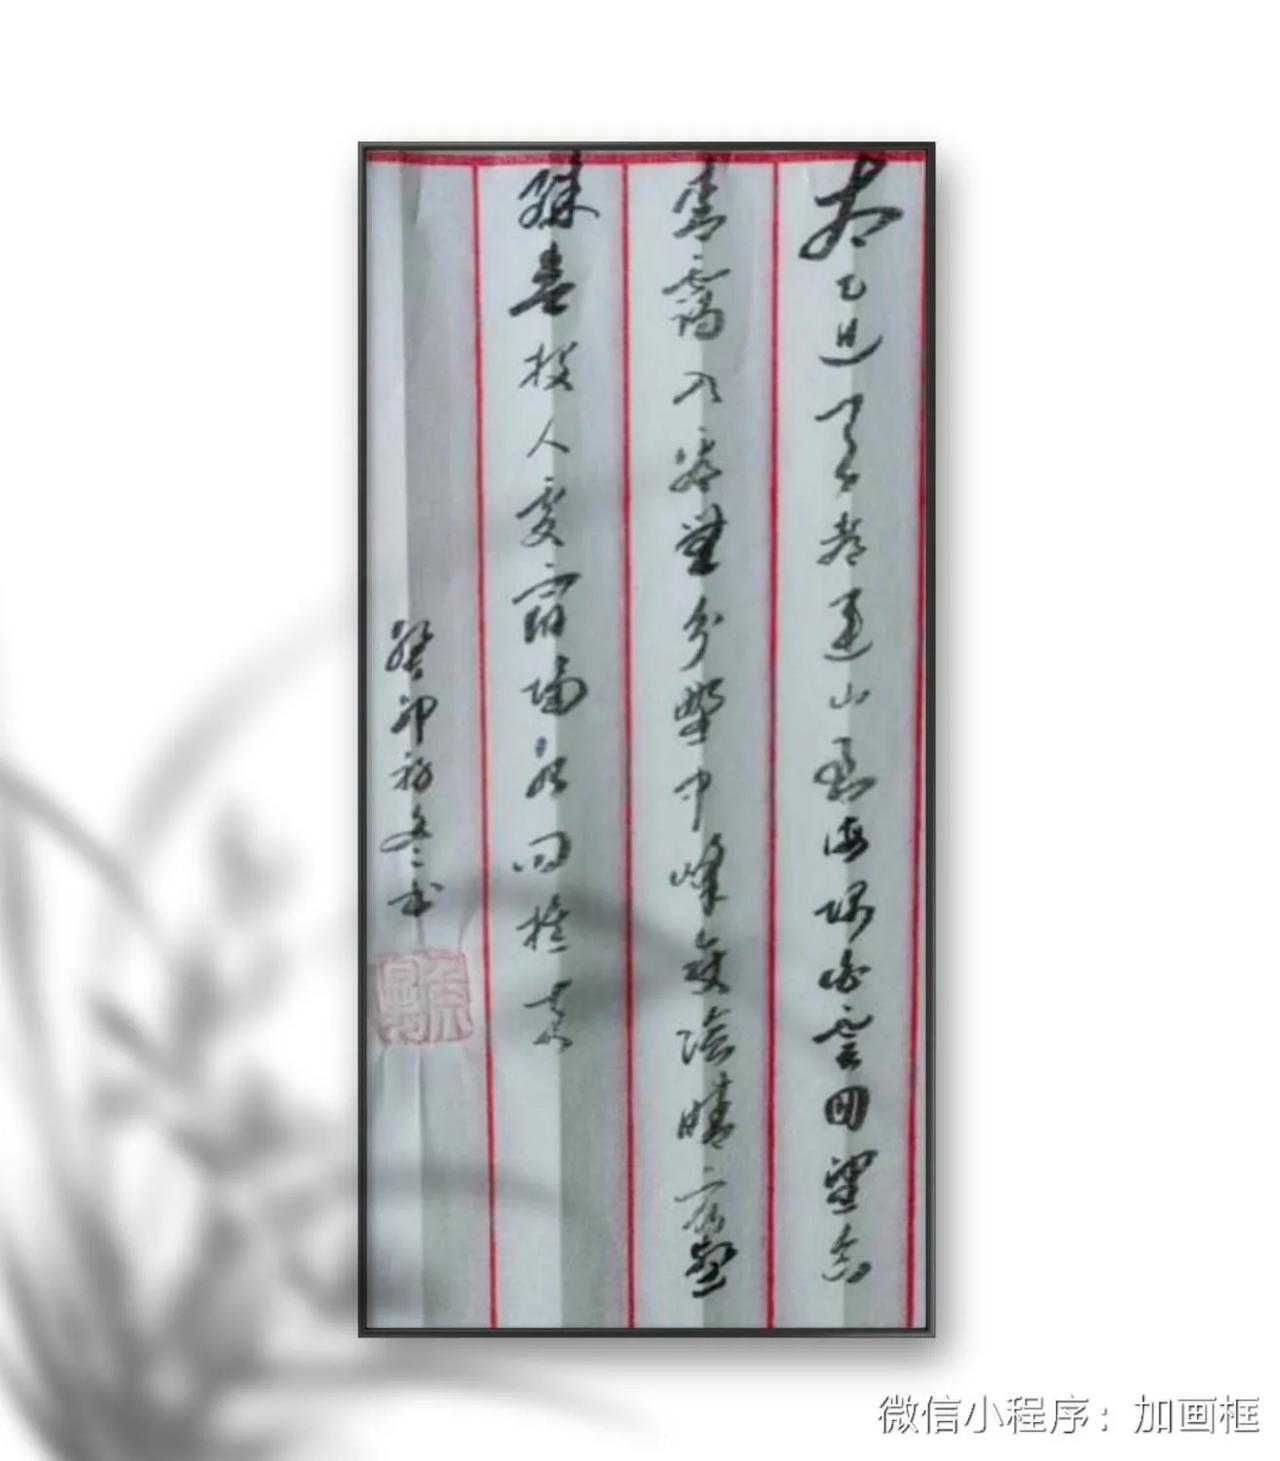 太乙近天都連山到海隅白雲回望合
青靄入看無分野中峰變陰晴衆壑
殊欲投人處宿隔水問樵夫
癸卯初冬書
微信小程序：加画框